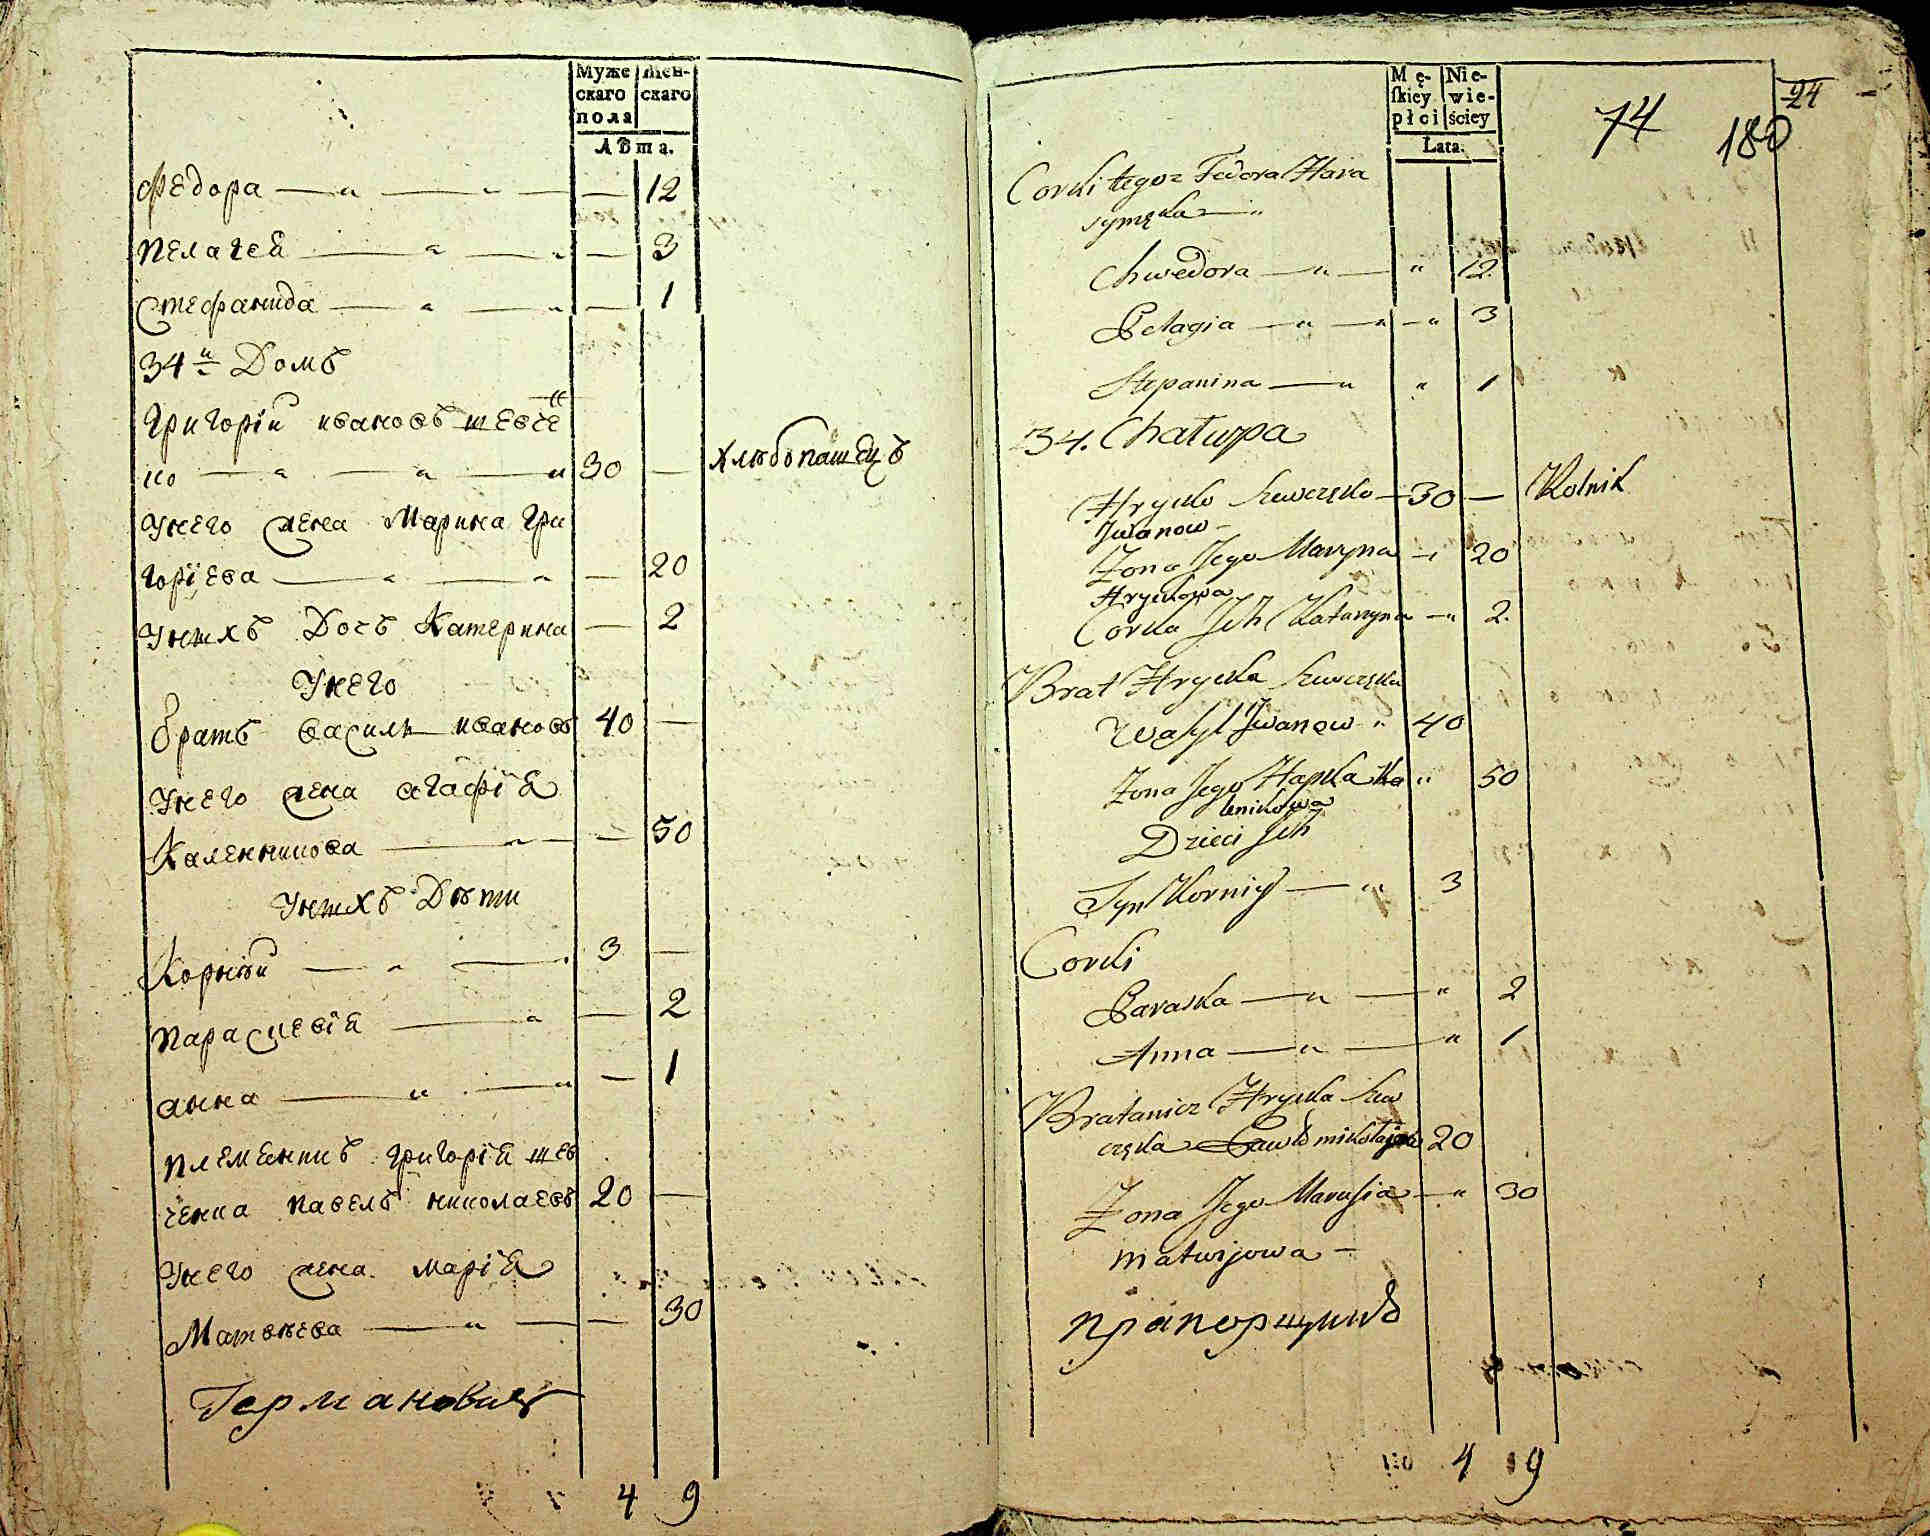 Муже
скаго
пола
жен-
скаго
Лѣта.
Федора — " — " — — 12
Пелагея — " — " — 3
Стефанида — " — " — 1
34й Домъ
Григорій ивановъ шевче
ко — " — " — " 30 — хлѣбопашецъ
Унего жена Марина Гри
горіева — " — " — 20
Унихъ Дочь Катерина — 2
Унего
братъ василь ивановъ 40 —
Унего жена агафія
Каленикова — " — 50
Унихъ Дѣти
Корнѣй — " — 3 —
Параскевія — " — 2
анна — " — " — 1
племенникъ григорія шев
ченка павелъ николаевъ 20 —
Унего жена марія
Матвѣева — " — — 30
Германович
4 9
Mę-
skiey
płci
Nie-
wie-
ściey
Lata.
74
180
24
Corki tegoz Fedora Hara
symęka — "
Chwedora — " — " 12
Pelagia — " — " — " 3
Stepanina — " " 1
34. Chatupa
Hrycko Szewczęko — 30 — Rolnik
Iwanow —
Zona Jego Maryna — " 20
Hryckowa
Corka Jch Katarzyna — " 2.
Brat Hrycka Szewczęka
Wasyl Jwanow " 40
Zona Jego Hapka Ka " 50
lenikowa
Dzieci Jch
Syn Korniy — " 3
Corki
Paraska — " — " 2
Anna — " — " 1
Bratanicz Hrycka Szew
częka Pawło mikołajow 20
Zona Jego Marusia — " 30
matwijowa —
прапорщикъ
4 9